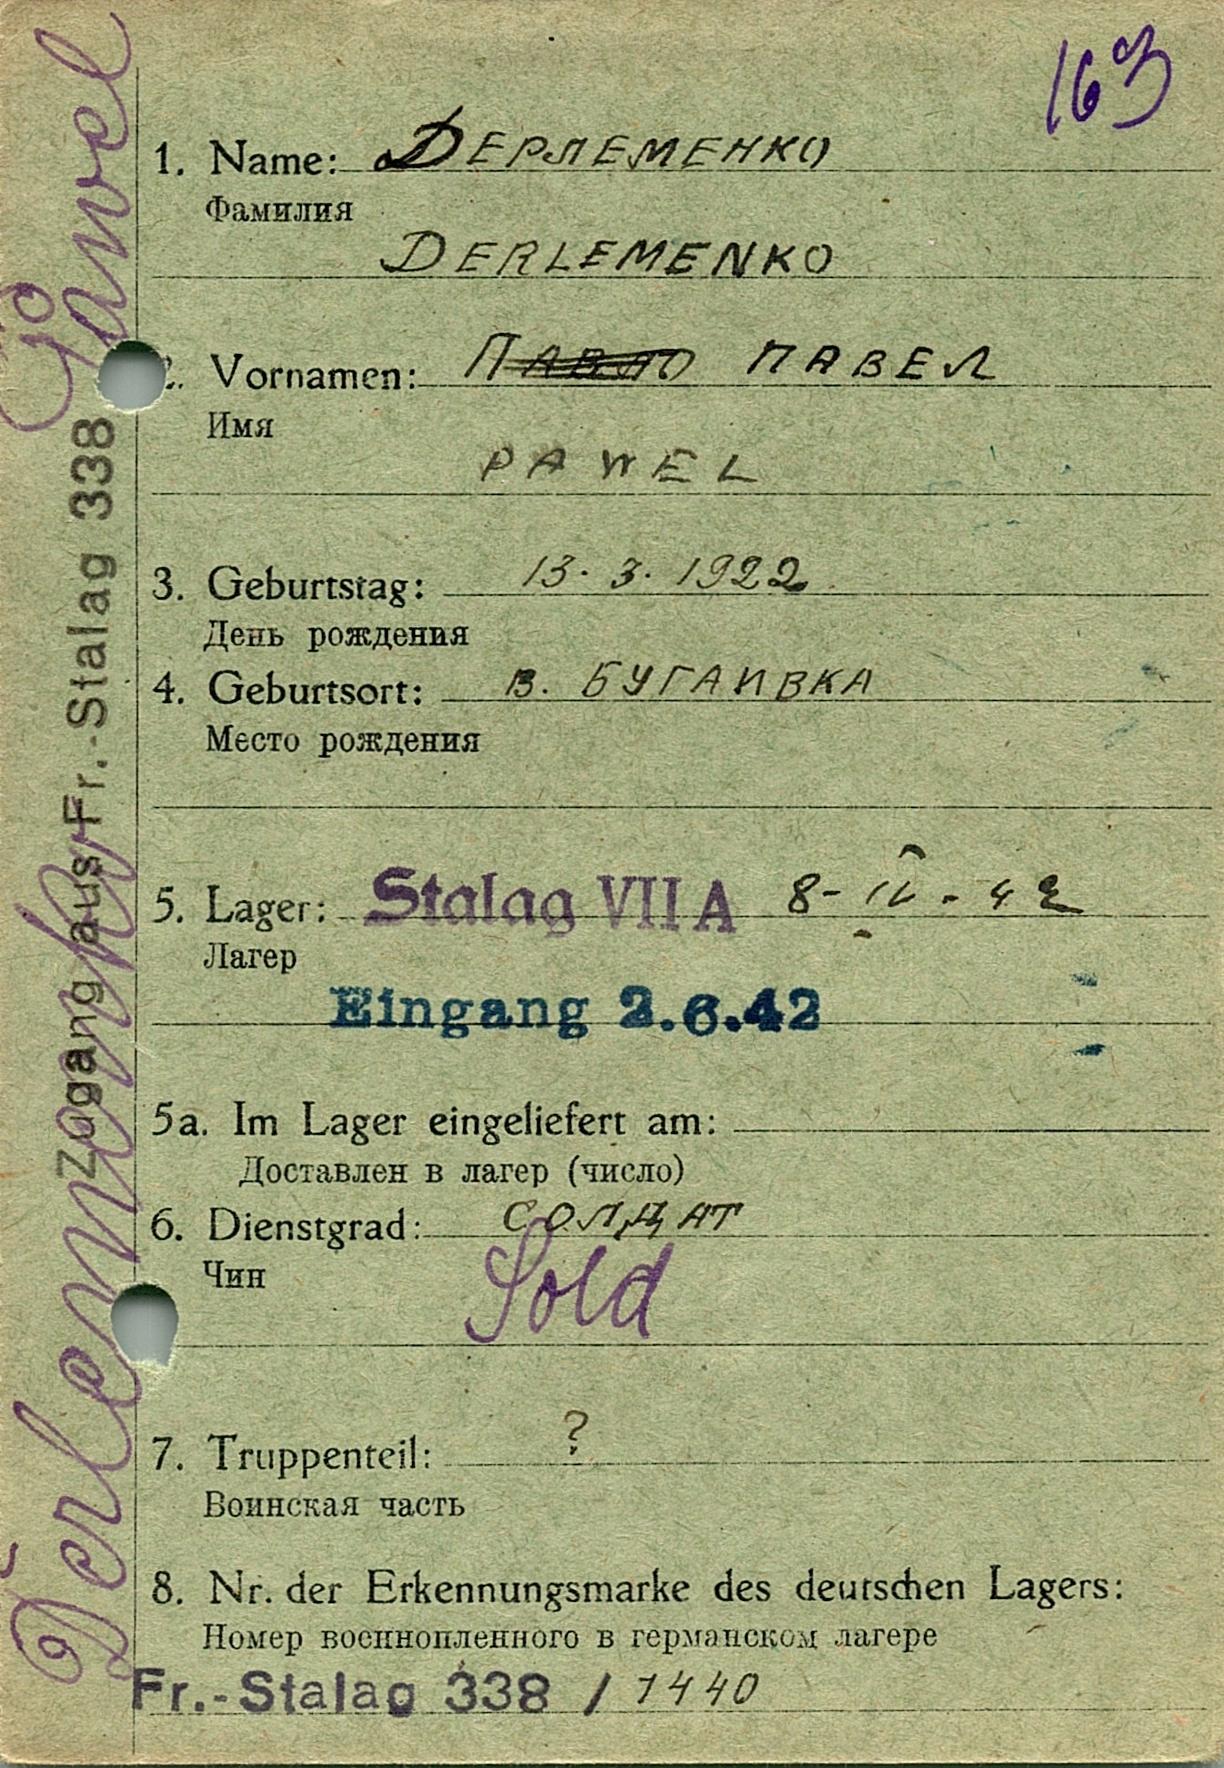 163
1. Name: ДЕРЛЕМЕНКО
Фамилия
DERLEMENKO
2. Vornamen: ПАВЛО ПАВЕЛ
Имя
PAWEL
3. Geburtstag: 13. 3. 1922
День рождения
4. Geburtsort: В. БУГАИВКА
Место рождения
5. Lager: Stalag VII A 8-IV-42
Лагер
Eingang 2.6.42
5a. Im Lager eingeliefert am:
Доставлен в лагер (число)
6. Dienstgrad: СОЛДАТ
Чин
Sold
7. Truppenteil: ?
Воинская часть
8. Nr. der Erkennungsmarke des deutschen Lagers:
Номер военнопленного в германском лагере
Fr.-Stalag 338 / 1440
Zugang aus Fr.-Stalag 338
Derlemenko Pawel